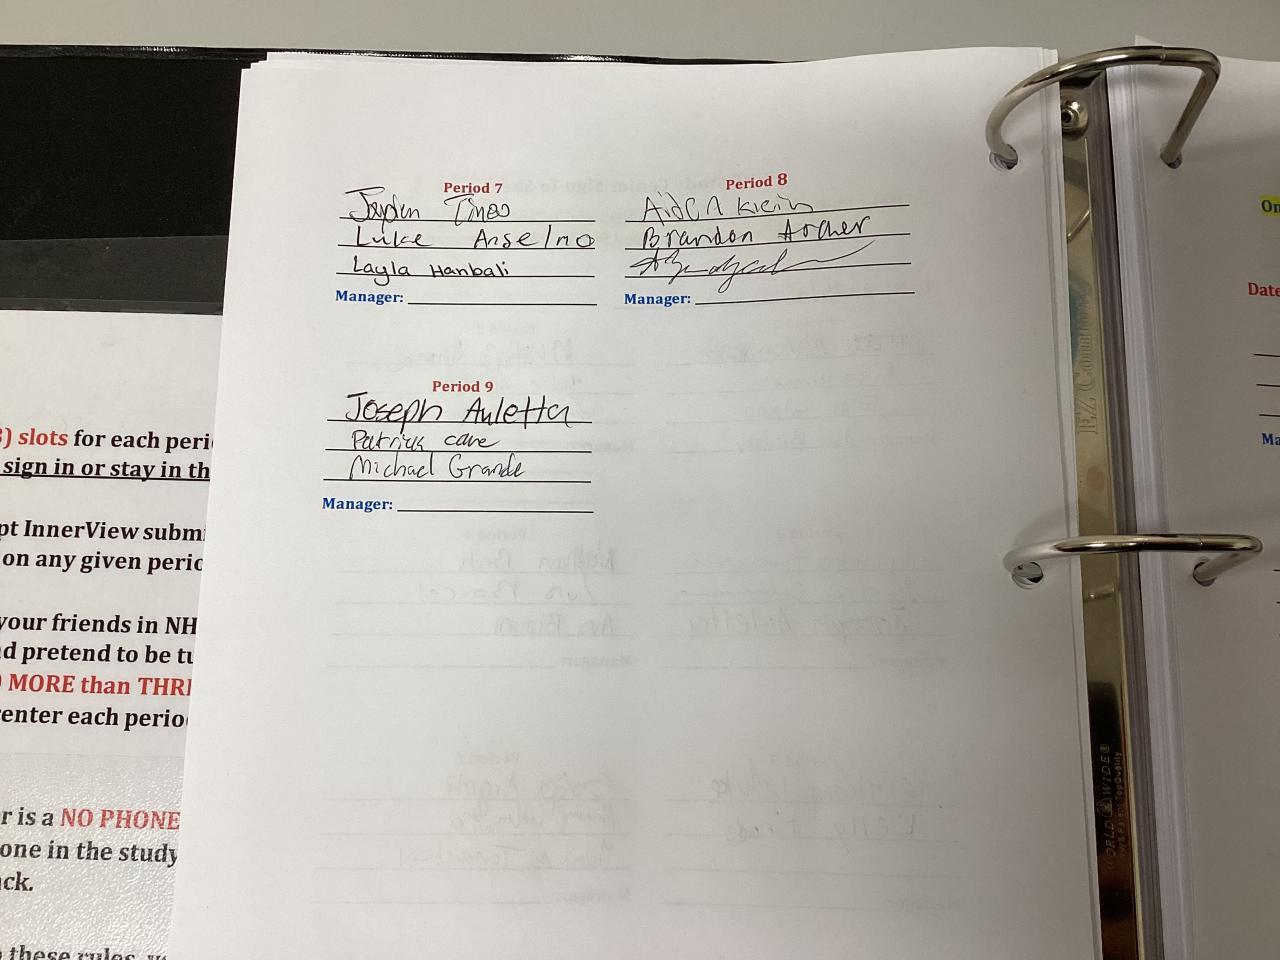 Period 7
Jayden Tineo
Luke Anselmo
Layla Hanbali
Manager:
Period 8
Aiden Klein
Brandon Archer
Manager:
Period 9
Joseph Auletta
Patrick cane
Michael Grande
Manager:
) slots for each peri
sign in or stay in th
pt InnerView submi
on any given perio
your friends in NH
d pretend to be tu
MORE than THRE
center each perio
r is a NO PHONE
one in the study
ck.
these rules, w
On
Date
Ma
EZ Comfort
WORLD WIDE®
Top Quality